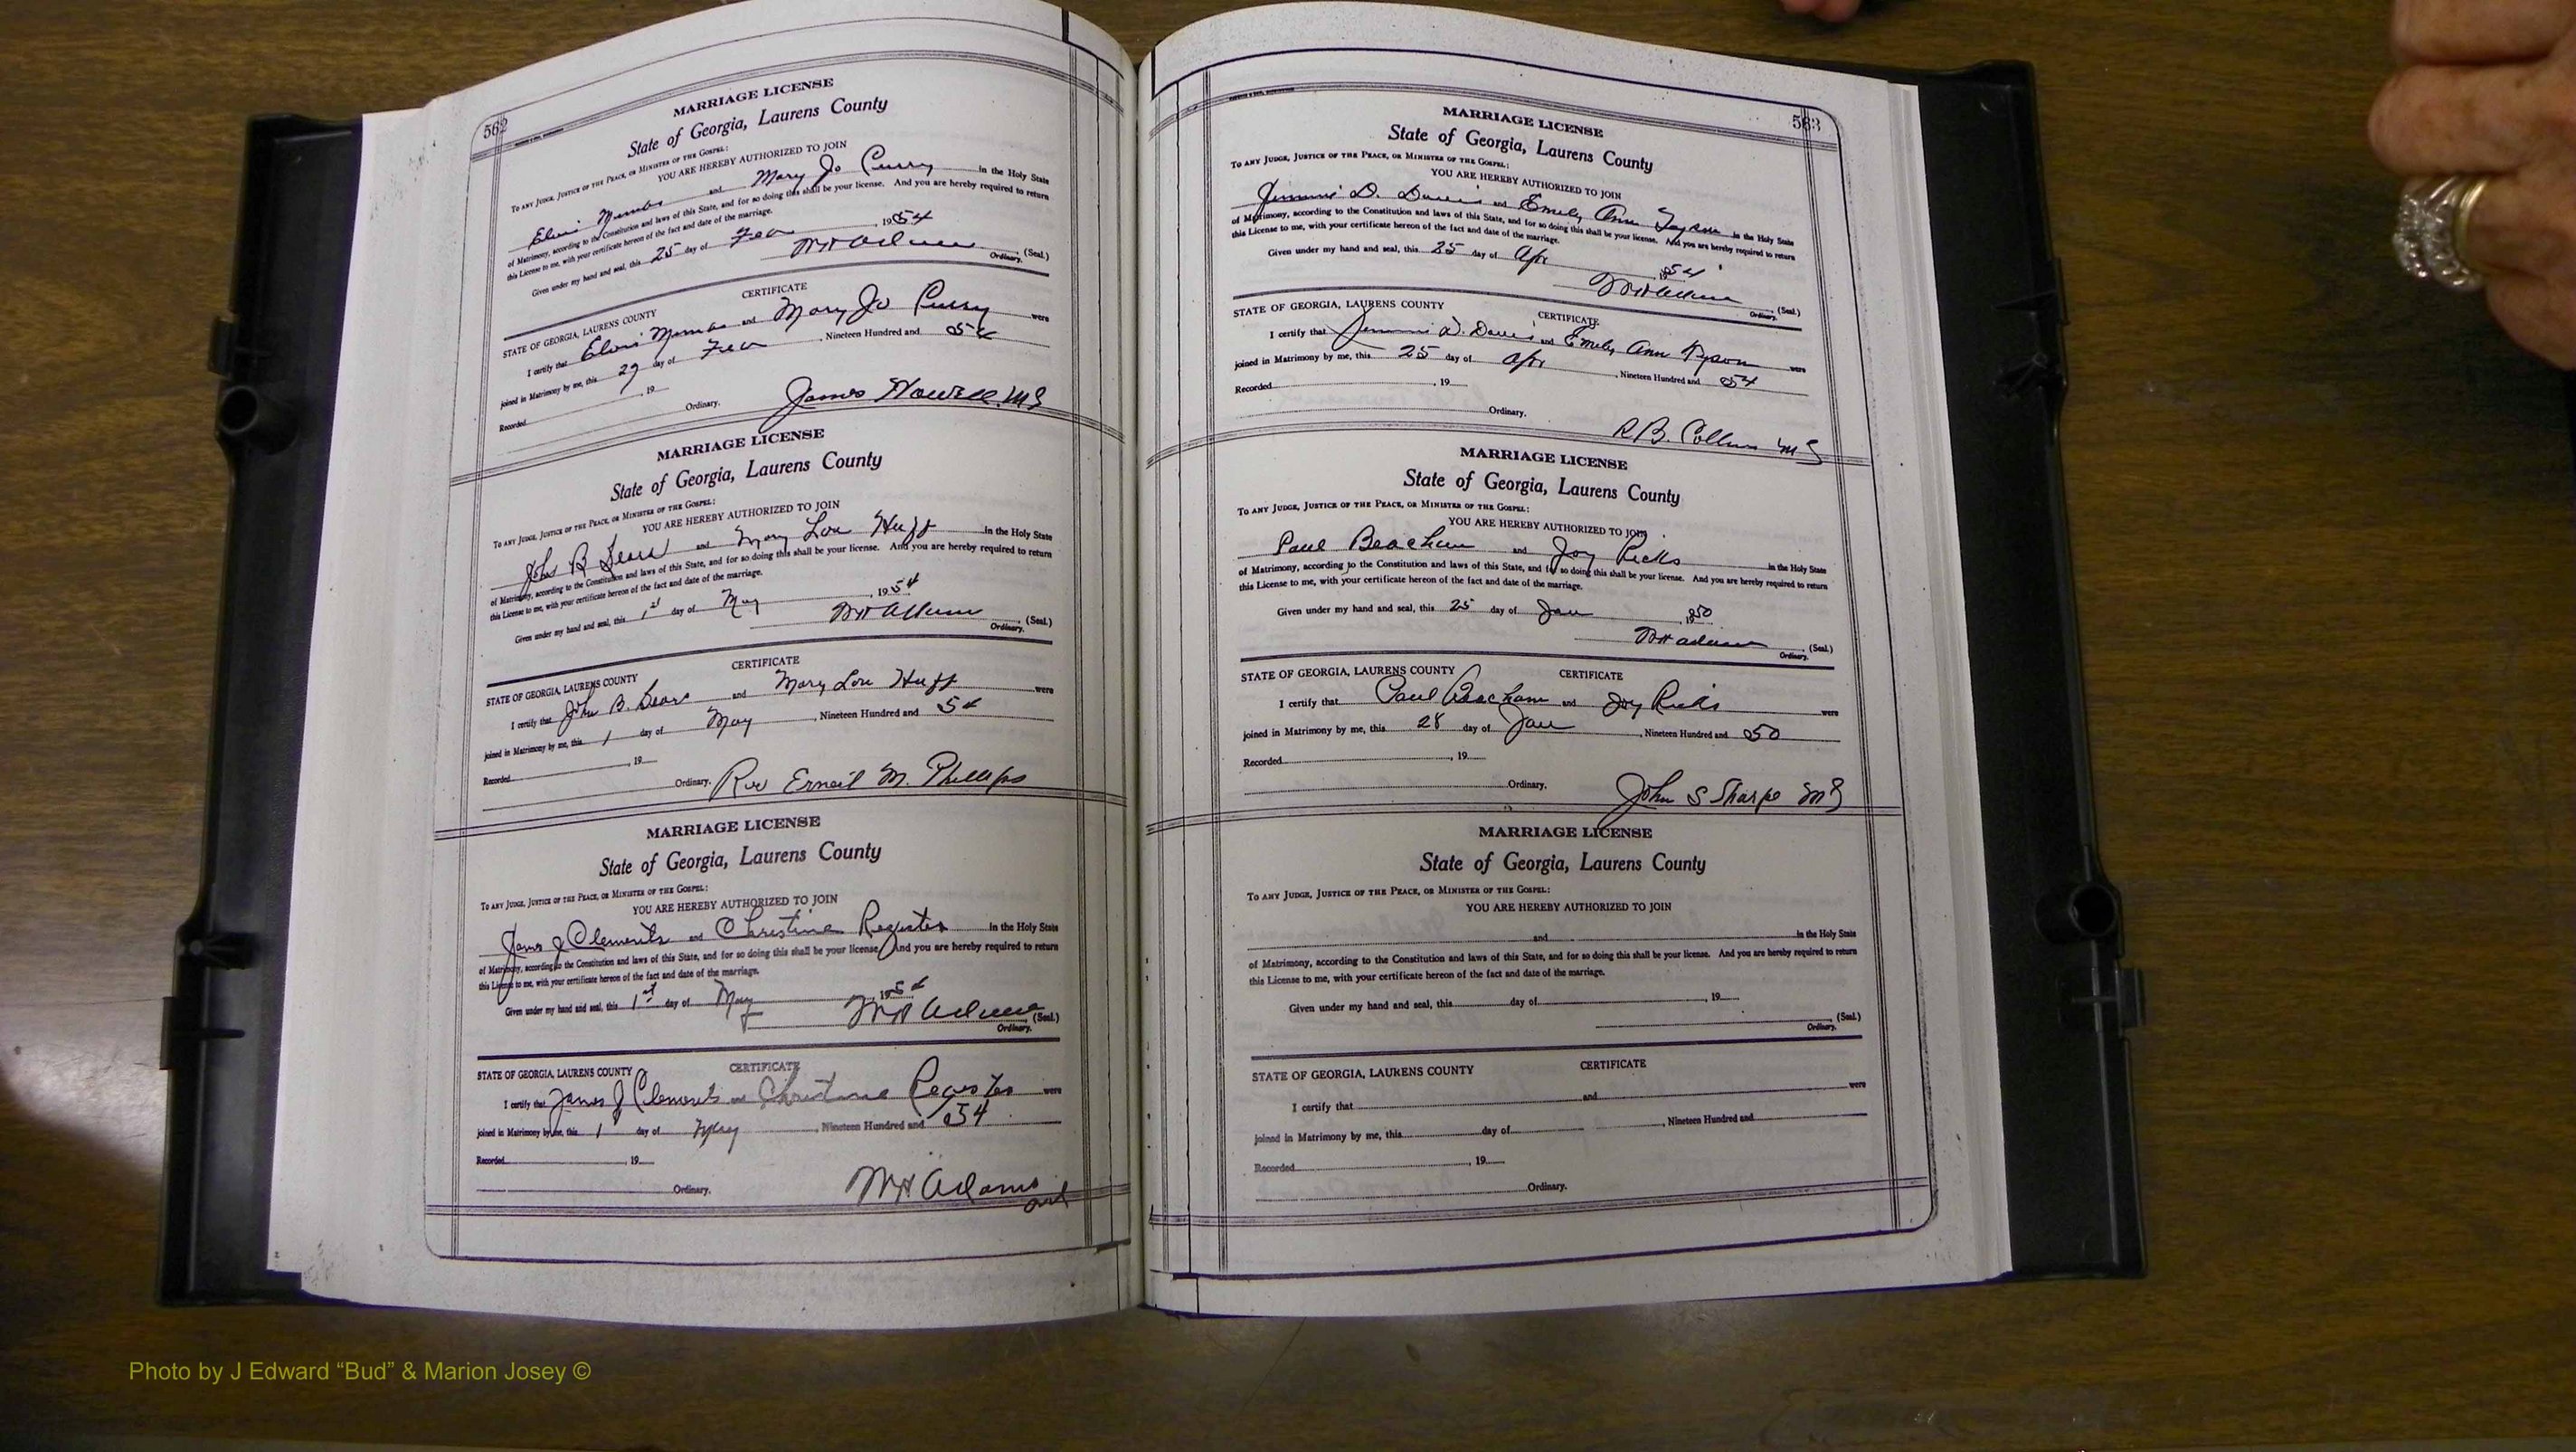 562
MARRIAGE LICENSE
State of Georgia, Laurens County
TO ANY JUDGE, JUSTICE OF THE PEACE, OR MINISTER OF THE GOSPEL:
YOU ARE HEREBY AUTHORIZED TO JOIN
Elvis Mimbs and Mary Jo Curry in the Holy State
of Matrimony, according to the Constitution and laws of this State, and for so doing this shall be your license. And you are hereby required to return
this License to me, with your certificate hereon of the fact and date of the marriage.
Given under my hand and seal, this 25 day of Feb, 1954
WH Adams (Seal.)
Ordinary.
CERTIFICATE
STATE OF GEORGIA, LAURENS COUNTY
I certify that Elvis Mimbs and Mary Jo Curry were
joined in Matrimony by me, this 27 day of Feb, Nineteen Hundred and 54
Recorded, 19
Ordinary. James Howell MG
MARRIAGE LICENSE
State of Georgia, Laurens County
TO ANY JUDGE, JUSTICE OF THE PEACE, OR MINISTER OF THE GOSPEL:
YOU ARE HEREBY AUTHORIZED TO JOIN
John B and Mary Lou Huff in the Holy State
of Matrimony, according to the Constitution and laws of this State, and for so doing this shall be your license. And you are hereby required to return
this License to me, with your certificate hereon of the fact and date of the marriage.
Given under my hand and seal, this 1st day of May, 1954
WH Adams (Seal.)
Ordinary.
CERTIFICATE
STATE OF GEORGIA, LAURENS COUNTY
I certify that John B. and Mary Lou Huff were
joined in Matrimony by me, this 1 day of May, Nineteen Hundred and 54
Recorded, 19
Ordinary. Rev Ernest M. Phillips
MARRIAGE LICENSE
State of Georgia, Laurens County
TO ANY JUDGE, JUSTICE OF THE PEACE, OR MINISTER OF THE GOSPEL:
YOU ARE HEREBY AUTHORIZED TO JOIN
James J Clements and Christine Register in the Holy State
of Matrimony, according to the Constitution and laws of this State, and for so doing this shall be your license. And you are hereby required to return
this License to me, with your certificate hereon of the fact and date of the marriage.
Given under my hand and seal, this 1st day of May, 1954
WH Adams (Seal.)
Ordinary.
CERTIFICATE
STATE OF GEORGIA, LAURENS COUNTY
I certify that James J Clements and Christine Register were
joined in Matrimony by me, this 1 day of May, Nineteen Hundred and 54
Recorded, 19
Ordinary. WH Adams
Ord
563
MARRIAGE LICENSE
State of Georgia, Laurens County
TO ANY JUDGE, JUSTICE OF THE PEACE, OR MINISTER OF THE GOSPEL:
YOU ARE HEREBY AUTHORIZED TO JOIN
Jimmie D. Davis and Emily Ann Tyson in the Holy State
of Matrimony, according to the Constitution and laws of this State, and for so doing this shall be your license. And you are hereby required to return
this License to me, with your certificate hereon of the fact and date of the marriage.
Given under my hand and seal, this 25 day of Apr, 1954
WH Adams (Seal.)
Ordinary.
CERTIFICATE
STATE OF GEORGIA, LAURENS COUNTY
I certify that Jimmie D. Davis and Emily Ann Tyson were
joined in Matrimony by me, this 25 day of Apr, Nineteen Hundred and 54
Recorded, 19
Ordinary.
R.B. Collins MG
MARRIAGE LICENSE
State of Georgia, Laurens County
TO ANY JUDGE, JUSTICE OF THE PEACE, OR MINISTER OF THE GOSPEL:
YOU ARE HEREBY AUTHORIZED TO JOIN
Paul Beacham and Joy Ricks in the Holy State
of Matrimony, according to the Constitution and laws of this State, and for so doing this shall be your license. And you are hereby required to return
this License to me, with your certificate hereon of the fact and date of the marriage.
Given under my hand and seal, this 25 day of Jan, 1950
WH Adams (Seal.)
Ordinary.
STATE OF GEORGIA, LAURENS COUNTY CERTIFICATE
I certify that Paul Beacham and Joy Ricks were
joined in Matrimony by me, this 28 day of Jan, Nineteen Hundred and 50
Recorded, 19
Ordinary. John S Sharpe MG
MARRIAGE LICENSE
State of Georgia, Laurens County
TO ANY JUDGE, JUSTICE OF THE PEACE, OR MINISTER OF THE GOSPEL:
YOU ARE HEREBY AUTHORIZED TO JOIN
and in the Holy State
of Matrimony, according to the Constitution and laws of this State, and for so doing this shall be your license. And you are hereby required to return
this License to me, with your certificate hereon of the fact and date of the marriage.
Given under my hand and seal, this day of, 19
(Seal.)
Ordinary.
CERTIFICATE
STATE OF GEORGIA, LAURENS COUNTY
I certify that and were
joined in Matrimony by me, this day of, Nineteen Hundred and
Recorded, 19
Ordinary.
Photo by J Edward “Bud” & Marion Josey ©